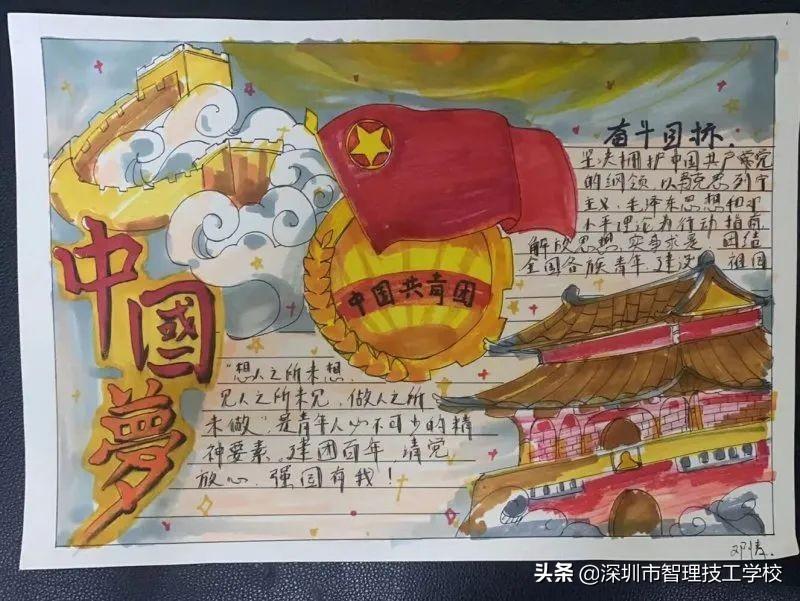 中國夢
中国共青团
奋斗目标.
坚决拥护中国共产党
的纲领,以马克思列宁
主义、毛泽东思想和邓
小平理论为行动指南,
解放思想,实事求是,团结
全国各族青年,建设祖国
"想人之所未想,
见人之所未见,做人之所
未做"是青年人必不可少的精
神要素。建团百年,请党
放心,强国有我!
邓倩.
头条 @深圳市智理技工学校